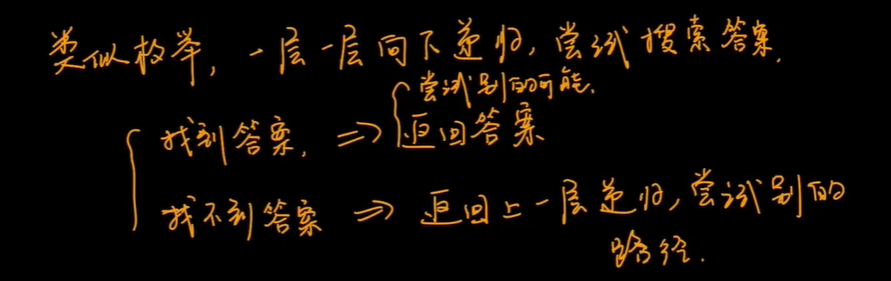 类似枚举,一层一层向下递归,尝试搜索答案.
找到答案, ⇒ { 尝试别的可能.
返回答案
找不到答案 ⇒ 返回上一层递归,尝试别的
路径.